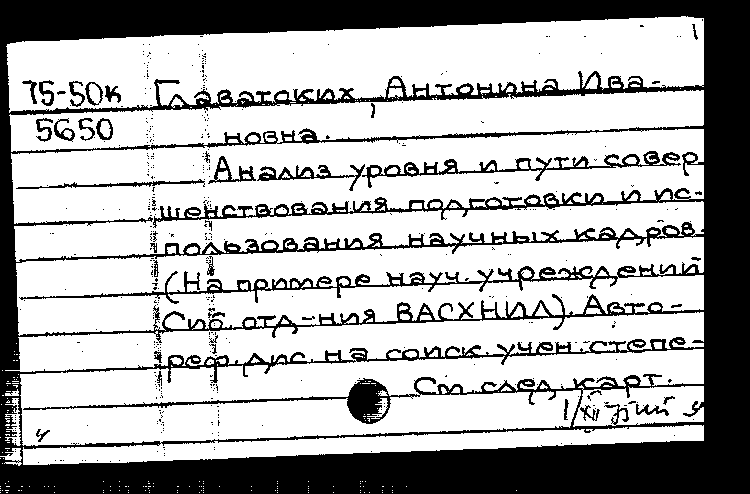 75-50к Главатских, Антонина Ива-
5650 новна.
Анализ уровня и пути совер
шенствования подготовки и ис-
пользования научных кадров.
(На примере науч. учреждений
Сиб. отд-ния ВАСХНИЛ). Авто-
реф. дис. на соиск. учен. степе-
См след. карт.
1/XII